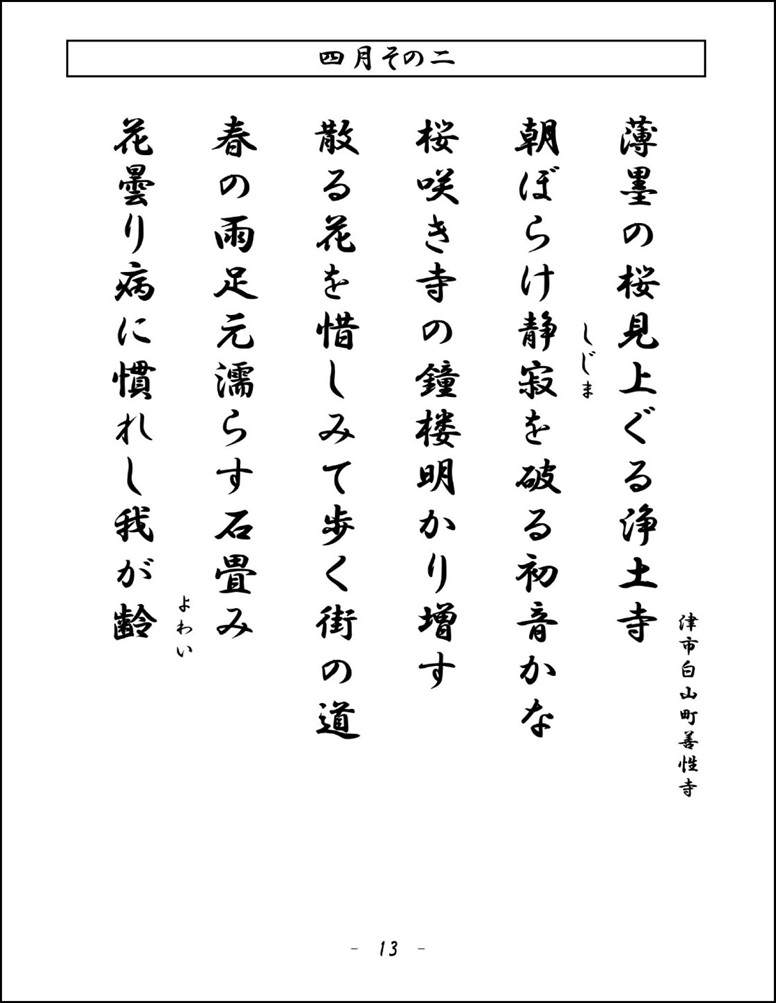 四月その二
津市白山町善性寺
薄墨の桜見上ぐる浄土寺
しじま
朝ぼらけ静寂を破る初音かな
桜咲き寺の鐘楼明かり増す
散る花を惜しみて歩く街の道
春の雨足元濡らす石畳み
よわい
花曇り病に慣れし我が齢
- 13 -